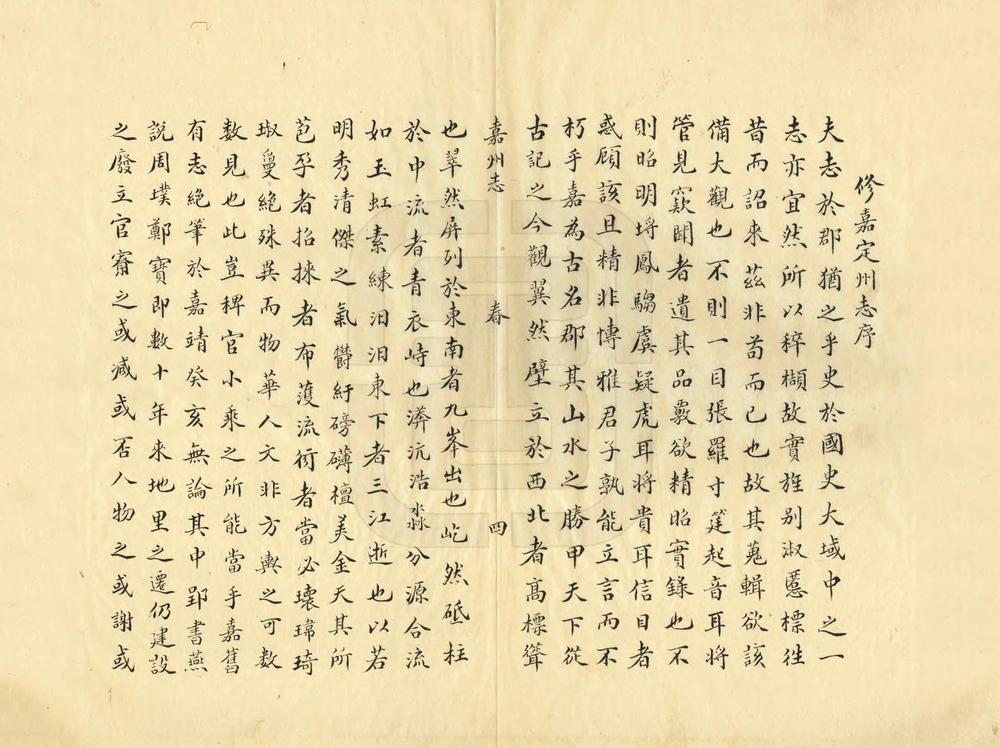 修嘉定州志序
夫志於郡猶之乎史於國史大域中之一
志亦宜然所以稡擷故實旌别淑慝標徃
昔而詔來茲非苟而已也故其蒐輯欲該
備大觀也不則一目張羅寸筳起音耳將
管見窾聞者遺其品覈欲精昭實錄也不
則昭明埒鳳騶虞疑虎耳將貴耳信目者
惑顧該且精非博雅君子孰能立言而不
朽乎嘉為古名郡其山水之勝甲天下從
古記之今觀翼然壁立於西北者髙標聳
嘉州志
春
四
也翠然屏列於東南者九峯出也屹然砥柱
於中流者青衣峙也漭沆浩淼分源合流
如玉虹素練汨汨東下者三江逝也以若
明秀清傑之氣欝紆磅礴檀美金天其所
苞孕者招揀者布濩流衍者當必瓌瑋琦
琡敻絶殊異而物華人文非方輿之可數
數見也此豈稗官小乘之所能當乎嘉舊
有志絶筆於嘉靖癸亥無論其中郢書燕
說周璞鄭寶即數十年來地里之遷仍建設
之廢立官齋之或减或否人物之或謝或